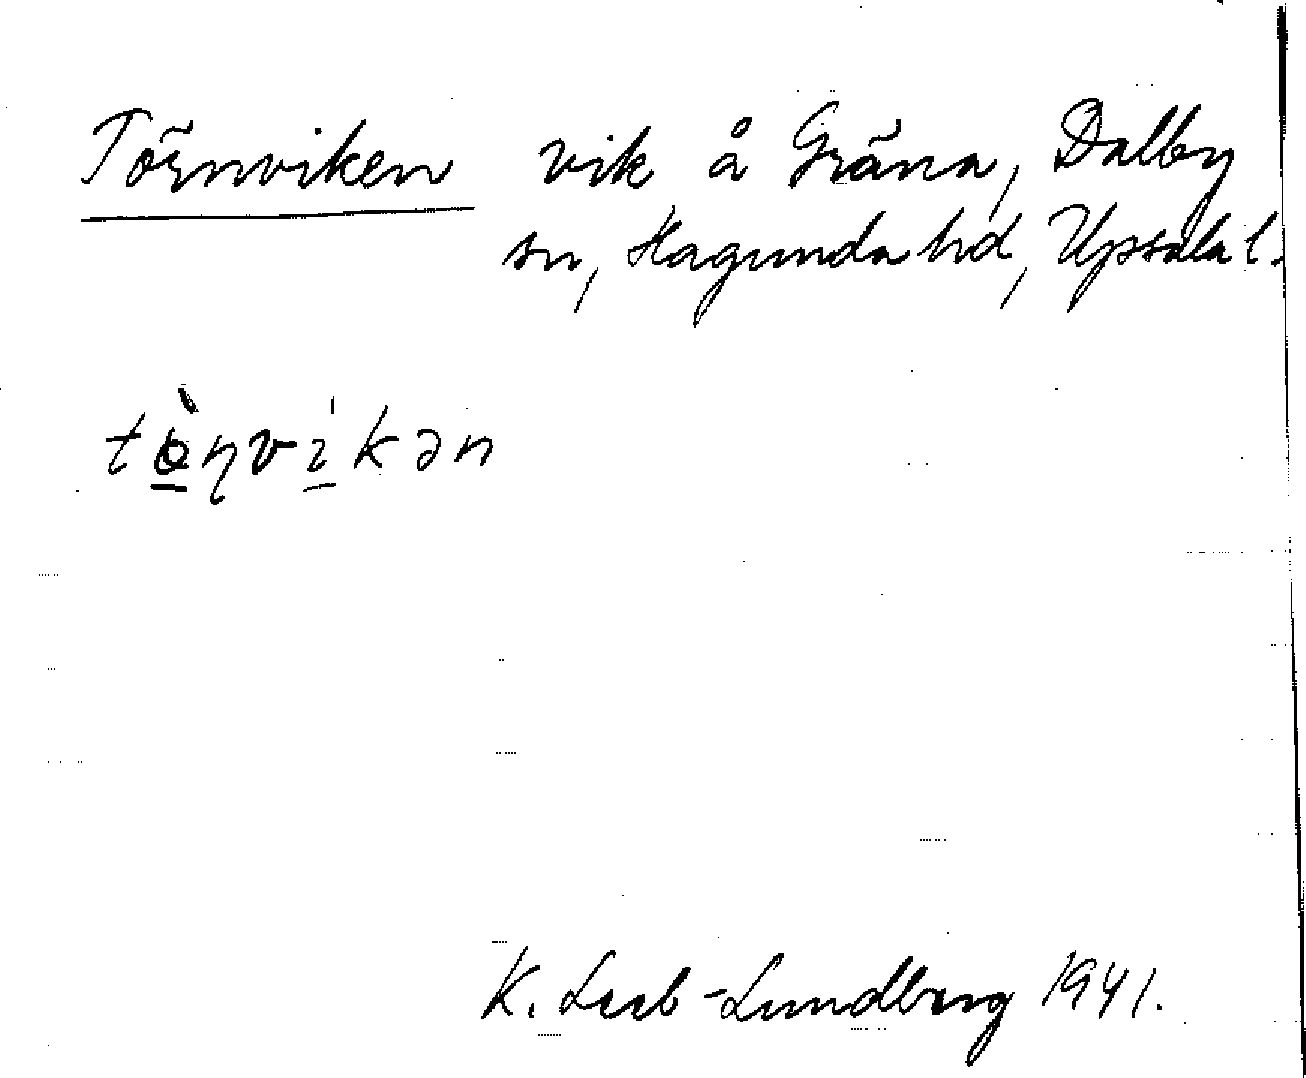 Törnviken vik å Gräna, Dalby
sn, Hagunda hd, Upsala l.
tö̀ɳvikən
K. Leeb-Lundberg 1941.